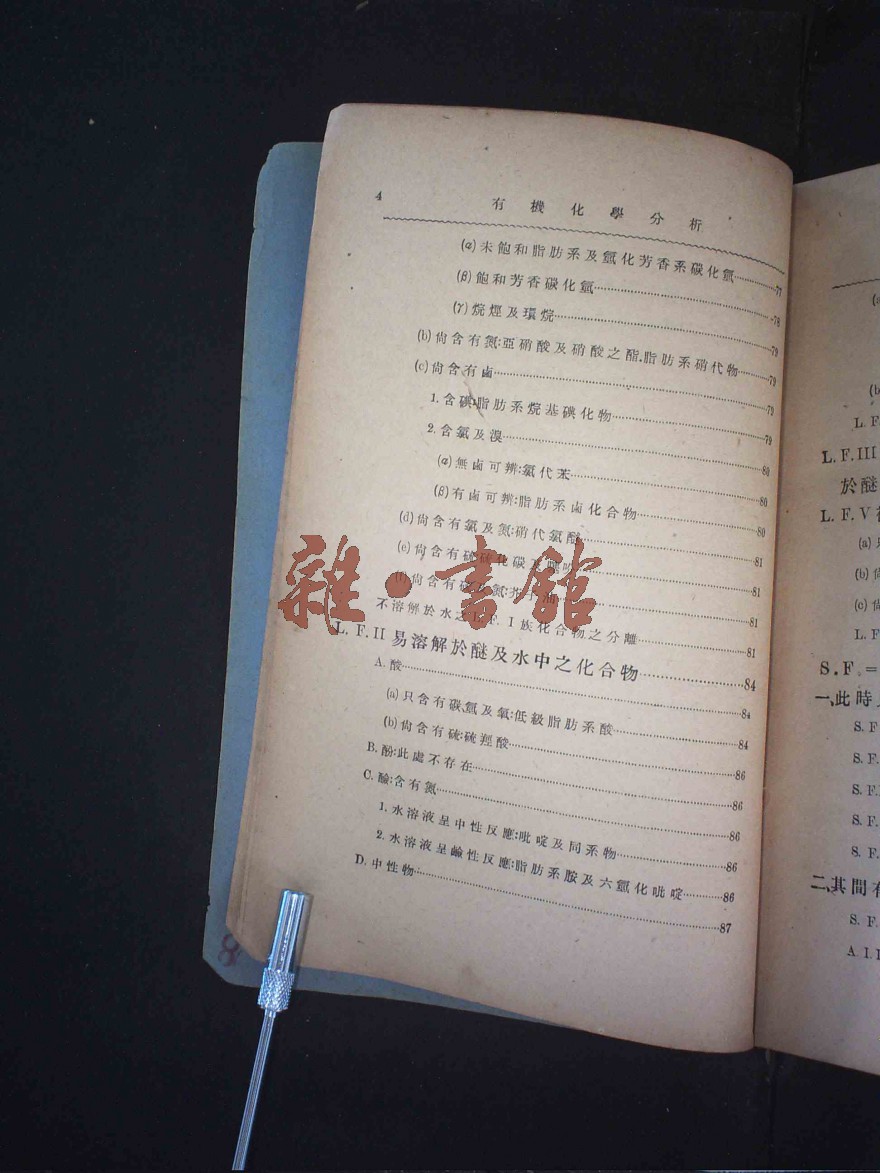 4 有機化學分析
(α)未飽和脂肪系及氫化芳香系碳化氫 77
(β)飽和芳香碳化氫 78
(γ)烷烴及環烷 79
(b)尙含有氮:亞硝酸及硝酸之酯,脂肪系硝代物 79
(c)尙含有鹵 79
1.含碘:脂肪系烷基碘化物 79
2.含氯及溴 80
(α)無鹵可辨:氯代苯 80
(β)有鹵可辨:脂肪系鹵化合物 80
(d)尙含有氯及氮:硝代氯 81
(e)尙含有硫 化碳及 81
(f)尙含有 及氮:芥 81
不溶解於水之L.F. I族化合物之分離 81
L. F. II 易溶解於醚及水中之化合物 84
A. 酸 84
(a)只含有碳,氫及氧:低級脂肪系酸 84
(b)尙含有硫:硫羥酸 86
B. 酚:此處不存在 86
C. 鹼:含有氮 86
1. 水溶液呈中性反應:吡啶及同系物 86
2. 水溶液呈鹼性反應:脂肪系胺及六氫化吡啶 86
D. 中性物 87
雜·書館
8
(b
L. F
L. F. III
於醚
L. F. V
(a)
(b)
(c)
L. F
S. F. =
一、此時
S. F
S. F.
S. F.
S. F.
S. F.
二、其間有
S. F.
A I.